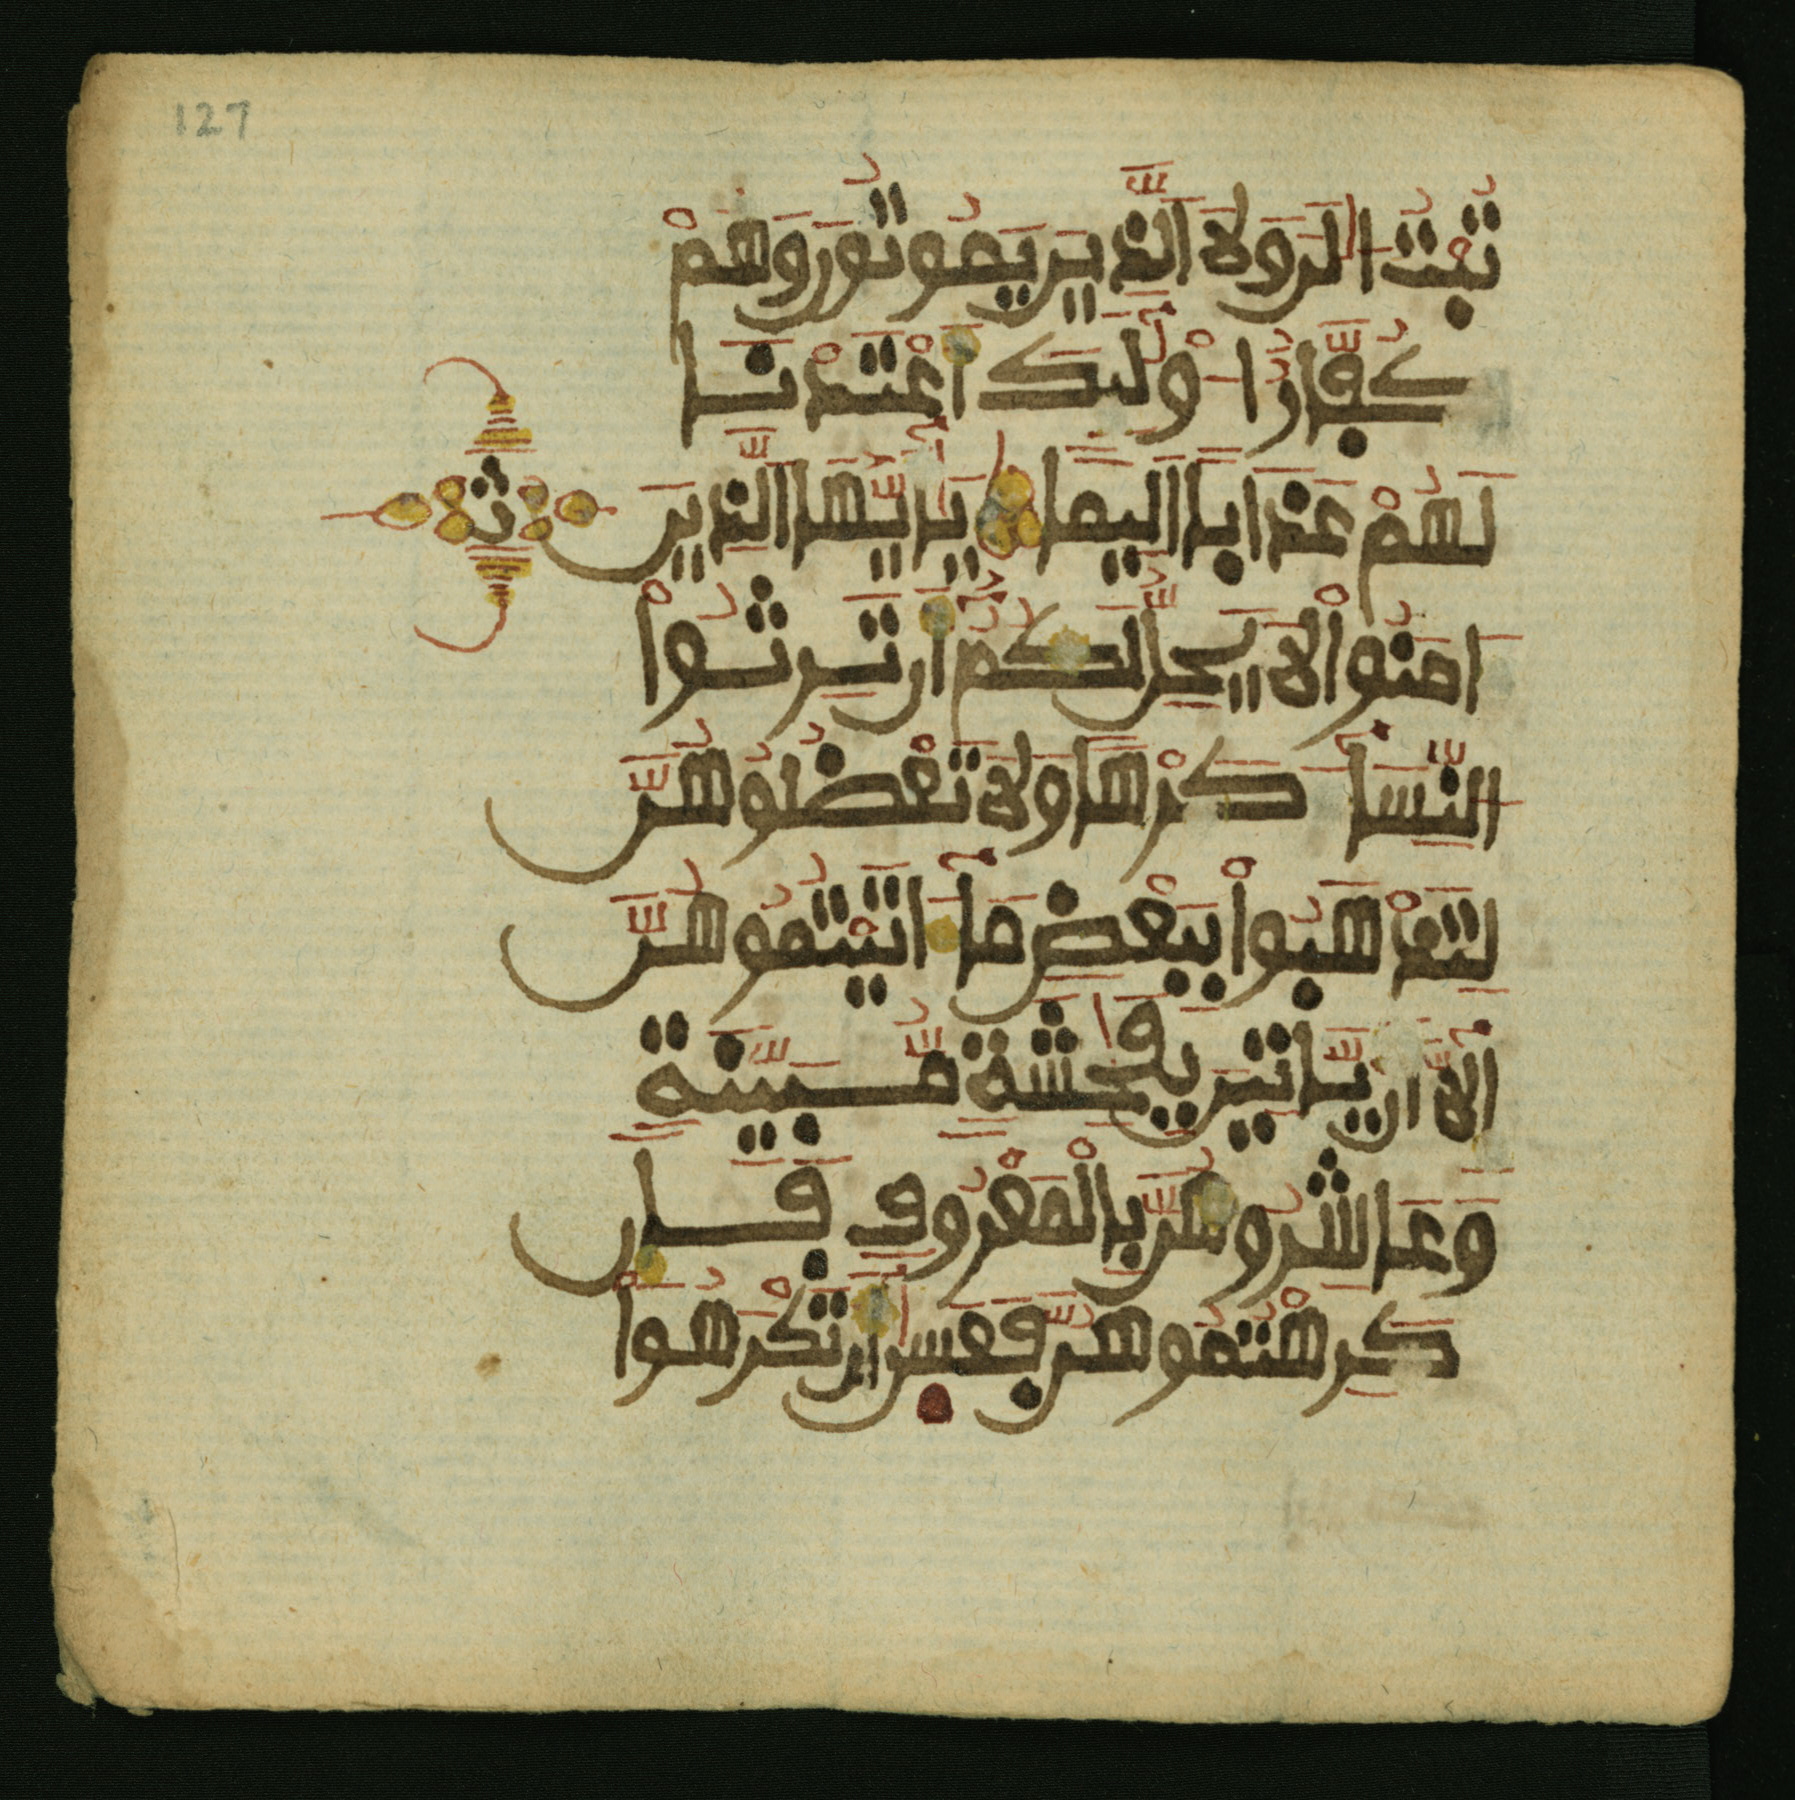 127
تُبْتُ الَٰنَ وَلَا الَّذِينَ يَمُوتُونَ وَهُمْ
كُفَّارٌ اوْلَٰٓئِكَ أَعْتَدْنَا
لَهُمْ عَذَابًا اَلِيمًا يَٰٓأَيُّهَا الَّذِينَ
ثمن
ءَامَنُواْ لَا يَحِلُّ لَكُمُۥٓ أَن تَرِثُواْ
النِّسَآءَ كَرْهًا وَلَا تَعْضُلُوهُنَّ
لِتَذْهَبُواْ بِبَعْضِ مَآ ءَاتَيْتُمُوهُنَّ
إِلَّآ أَنْ يَّاتِينَ بِفَٰحِشَةٍ مُّبَيَّنَةٍ
وَعَاشِرُوهُنَّ بِالْمَعْرُوفِ فَإِن
كَرِهْتُمُوهُنَّ فَعَسَىٰٓ أَن تَكْرَهُواْ